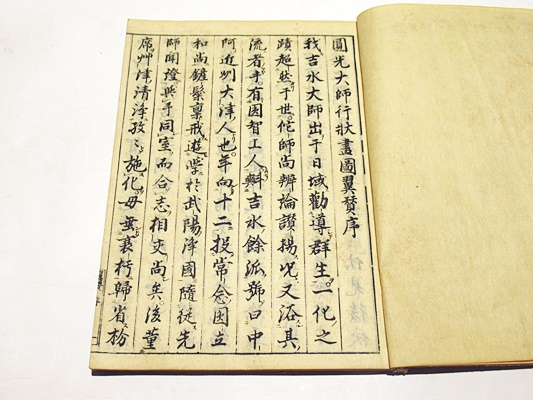 圓光大師行状畫圖翼賛序
我吉水大師出于日域勸導群生一化之
蹟超然于世佗師尚辨論讃揚况又浴其
流者乎有因智工人斟吉水餘派號曰中
阿近州大津人也年向十二投常念因立
和尚鏟髮稟戒遊學於武陽淨國隨從先
師聞證與予同室而合志相交尚矣後董
席州津清淨孜〻施化母耄裏歸省枌